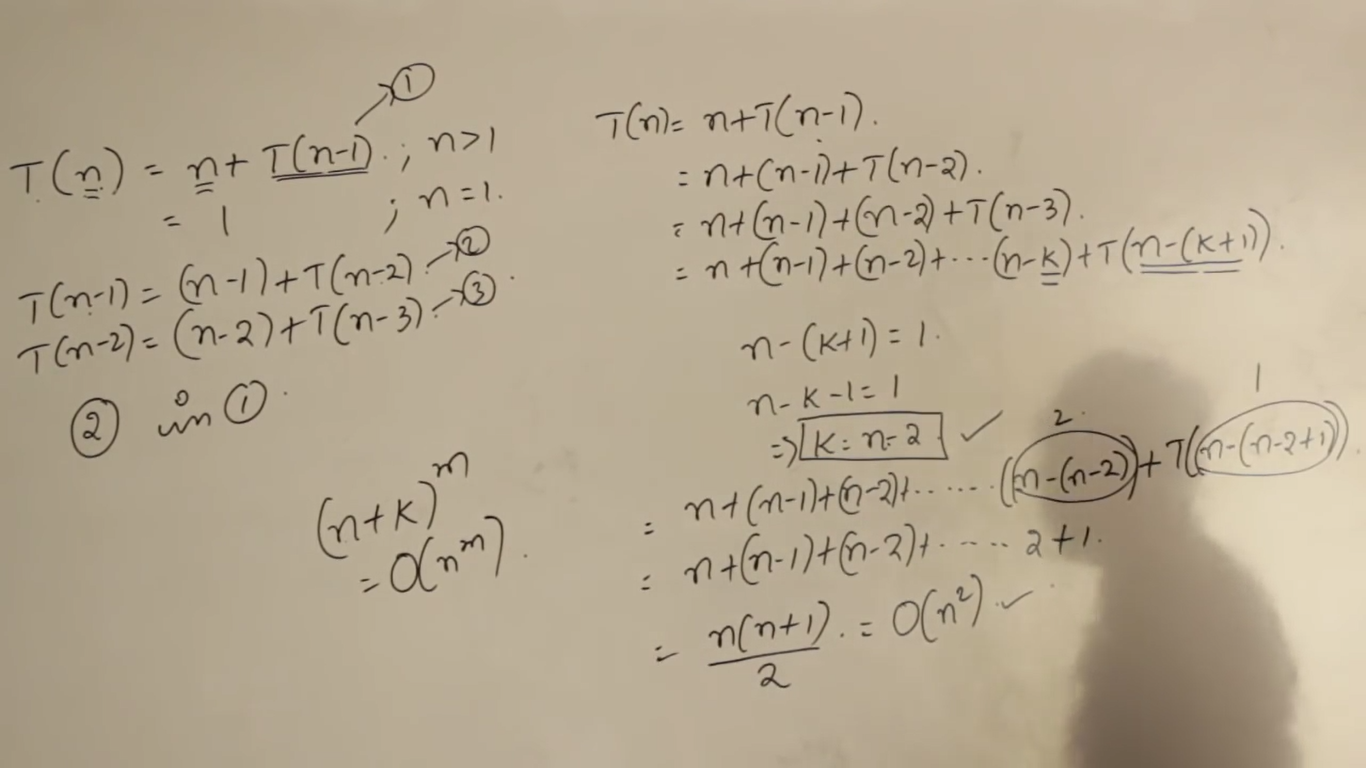 T(n) = n + T(n-1) . ; n>1 → ①
= 1 ; n=1.
T(n-1) = (n-1) + T(n-2) . → ②
T(n-2) = (n-2) + T(n-3) . → ③ .
② in ① .
(n+k)^m
= O(n^m) .
T(n) = n+T(n-1).
= n+(n-1)+T(n-2).
= n+(n-1)+(n-2)+T(n-3).
= n+(n-1)+(n-2)+···(n-k)+T(n-(k+1)).
n-(k+1) = 1.
n-k-1 = 1
=> k = n-2 ✓
2. 1
= n+(n-1)+(n-2)+······((n-(n-2))+T((n-(n-2+1)).
= n+(n-1)+(n-2)+····· 2+1.
= n(n+1)/2 . = O(n²) ✓